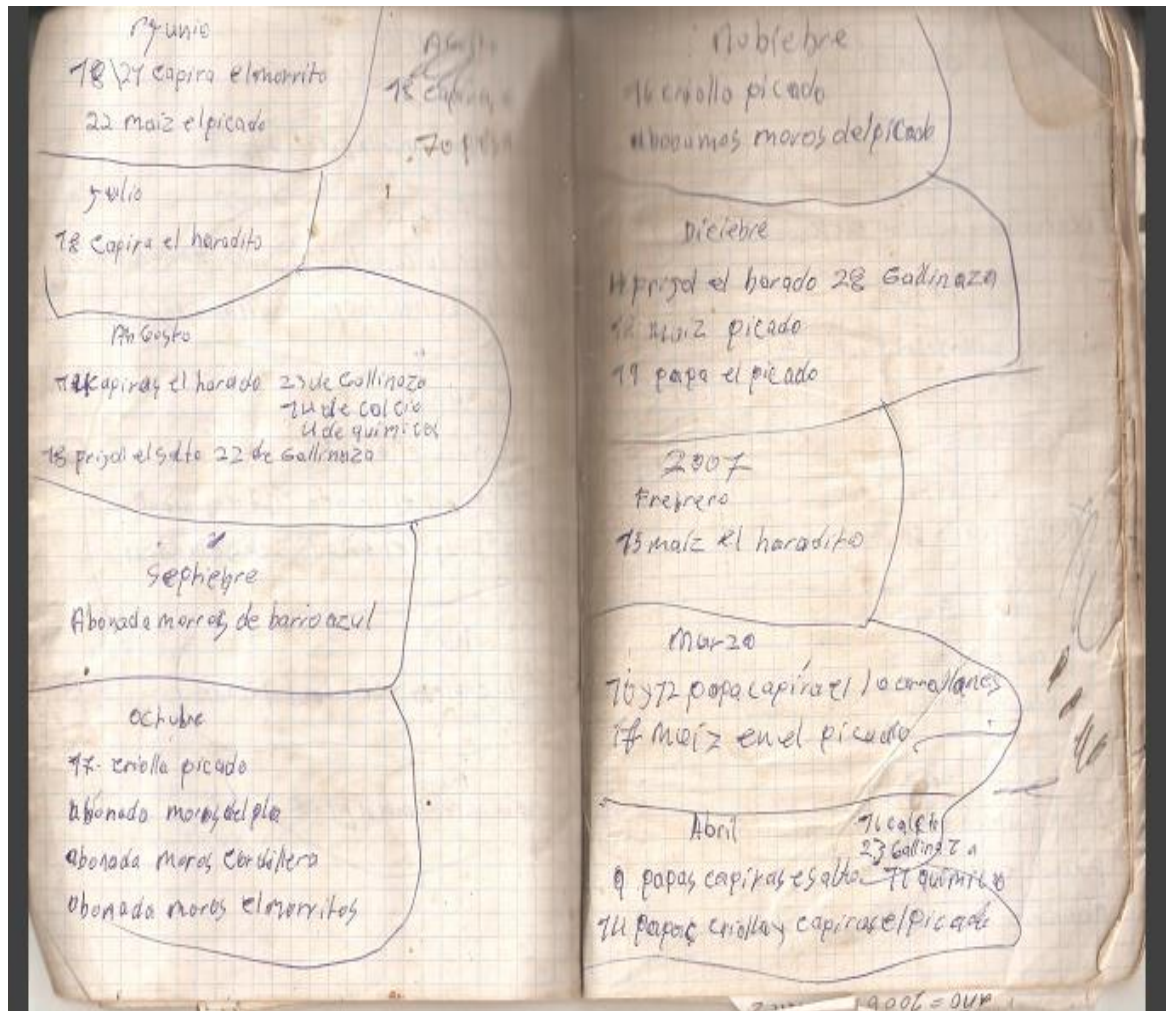 Junio
18\21 capira elmorrito
22 maiz elpicado
Agosto
18 capira
Julio
18 Capira el haradito
AnGosto
Capiras el harado 23 de Gallinaza
14 de calcio
4 de quimicos
18 prijol elsalto 22 de Gallinaza
Septiebre
Abonada morros de barrio azul
Octubre
17. criolla picado
abonado moros del pla
abonada moros Cordillera
abonada moros elmorritos
Nobiebre
16 criollo picado
abonamos moros delpicado
Diciebre
11 prijol el harado 28 Gallinaza
12 maiz picado
19 papa el picado
2007
Frebrero
15 maiz el haradito
Marzo
10 y 12 papa capira el
17 maiz en el picado
Abril
23 Gallinaza
9 papas capiras esalto 11 quimico
14 papas criolla y capiras elpicado
año = 2006